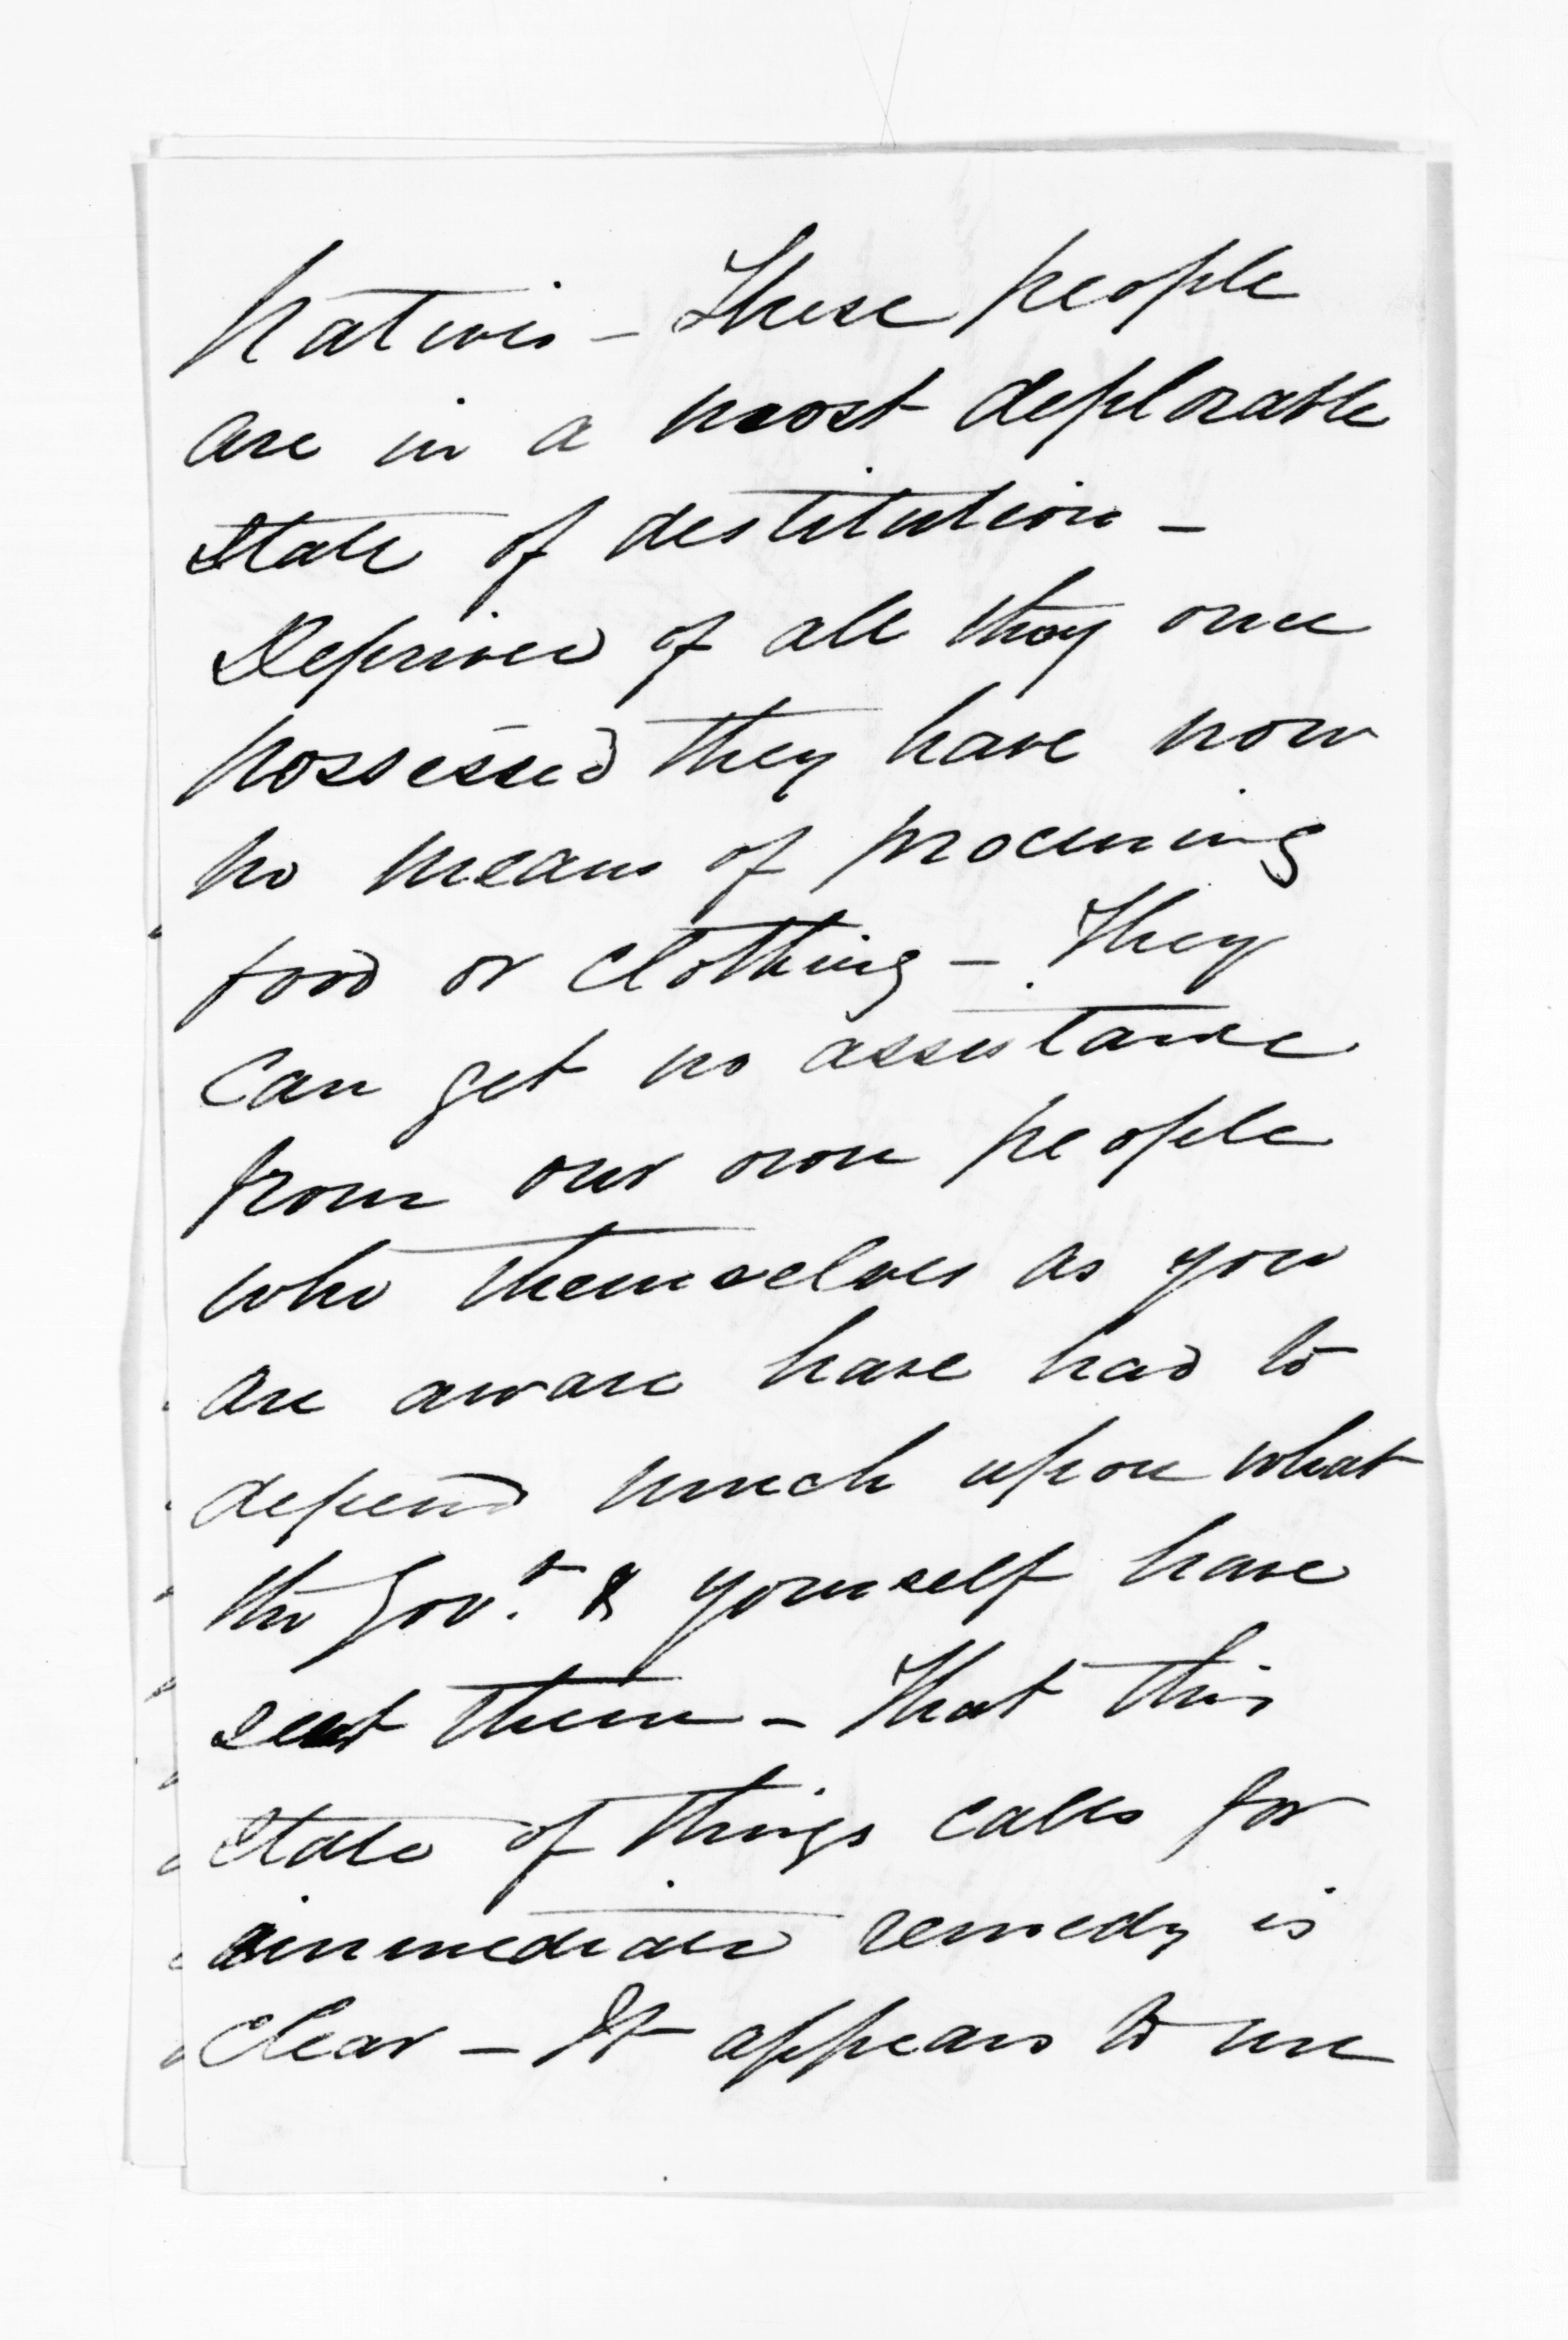 Natives – These people
are in a most deplorable
State of destitution –
Deprived of all they once
possessed they have now
no means of procuring
food or clothing – They
can get no assistance
from our own people
who themselves as you
are aware have had to
depend much upon what
the Gov.t & yourself have
sent them – That this
State of things calls for
immediate remedy is
clear – It appears to me